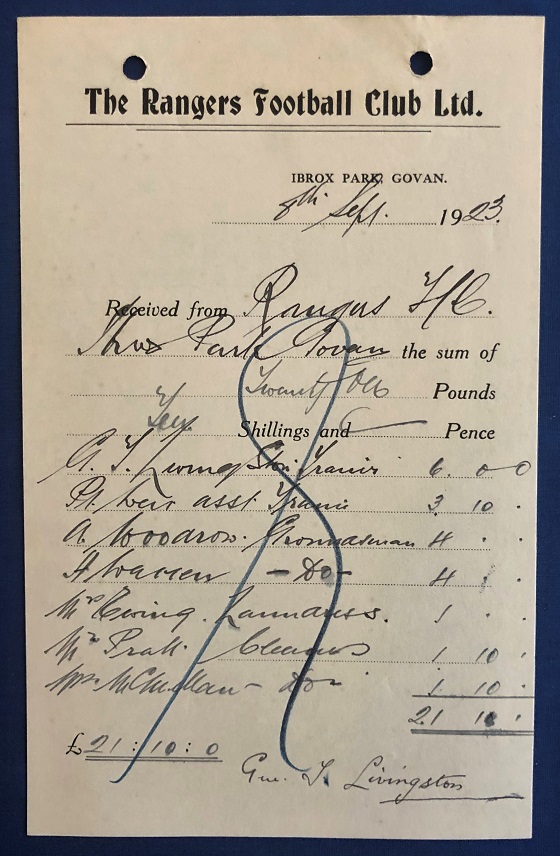 The Rangers Football Club Ltd.
IBROX PARK, GOVAN.
8th Sept. 1923.
Received from Rangers F.C.
Ibrox Park Govan the sum of
Twenty One Pounds
Ten Shillings and — Pence
G. T. Livingston. Trainer 6. 0 0
Weir asst. Trainer 3. 10 .
A Woodrow. Groundsman 4 . .
A Warren - Do - 4 . .
Mrs Ewing. Laundress. 1 . .
Mrs Pratt Cleaner 1 10 .
Mrs McMillan - Do - 1 10 .
21 10 .
£ 21 : 10 : 0
Geo. T. Livingston